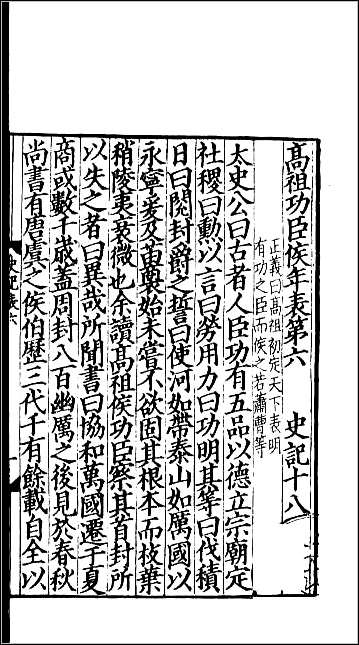 高祖功臣侯年表第六　史記十八
正義曰高祖初定天下表明
有功之臣而侯之若蕭曹等
太史公曰古者人臣功有五品以德立宗廟定
社稷曰勳以言曰勞用力曰功明其等曰伐積
日曰閱封爵之誓曰使河如帶泰山如厲國以
永寧爰及苗裔始未嘗不欲固其根本而枝葉
稍陵夷衰微也余讀高祖侯功臣察其首封所
以失之者曰異哉所聞書曰協和萬國遷于夏
商或數千歲蓋周封八百幽厲之後見於春秋
尚書有唐虞之侯伯歷三代千有餘載自全以
史記表六